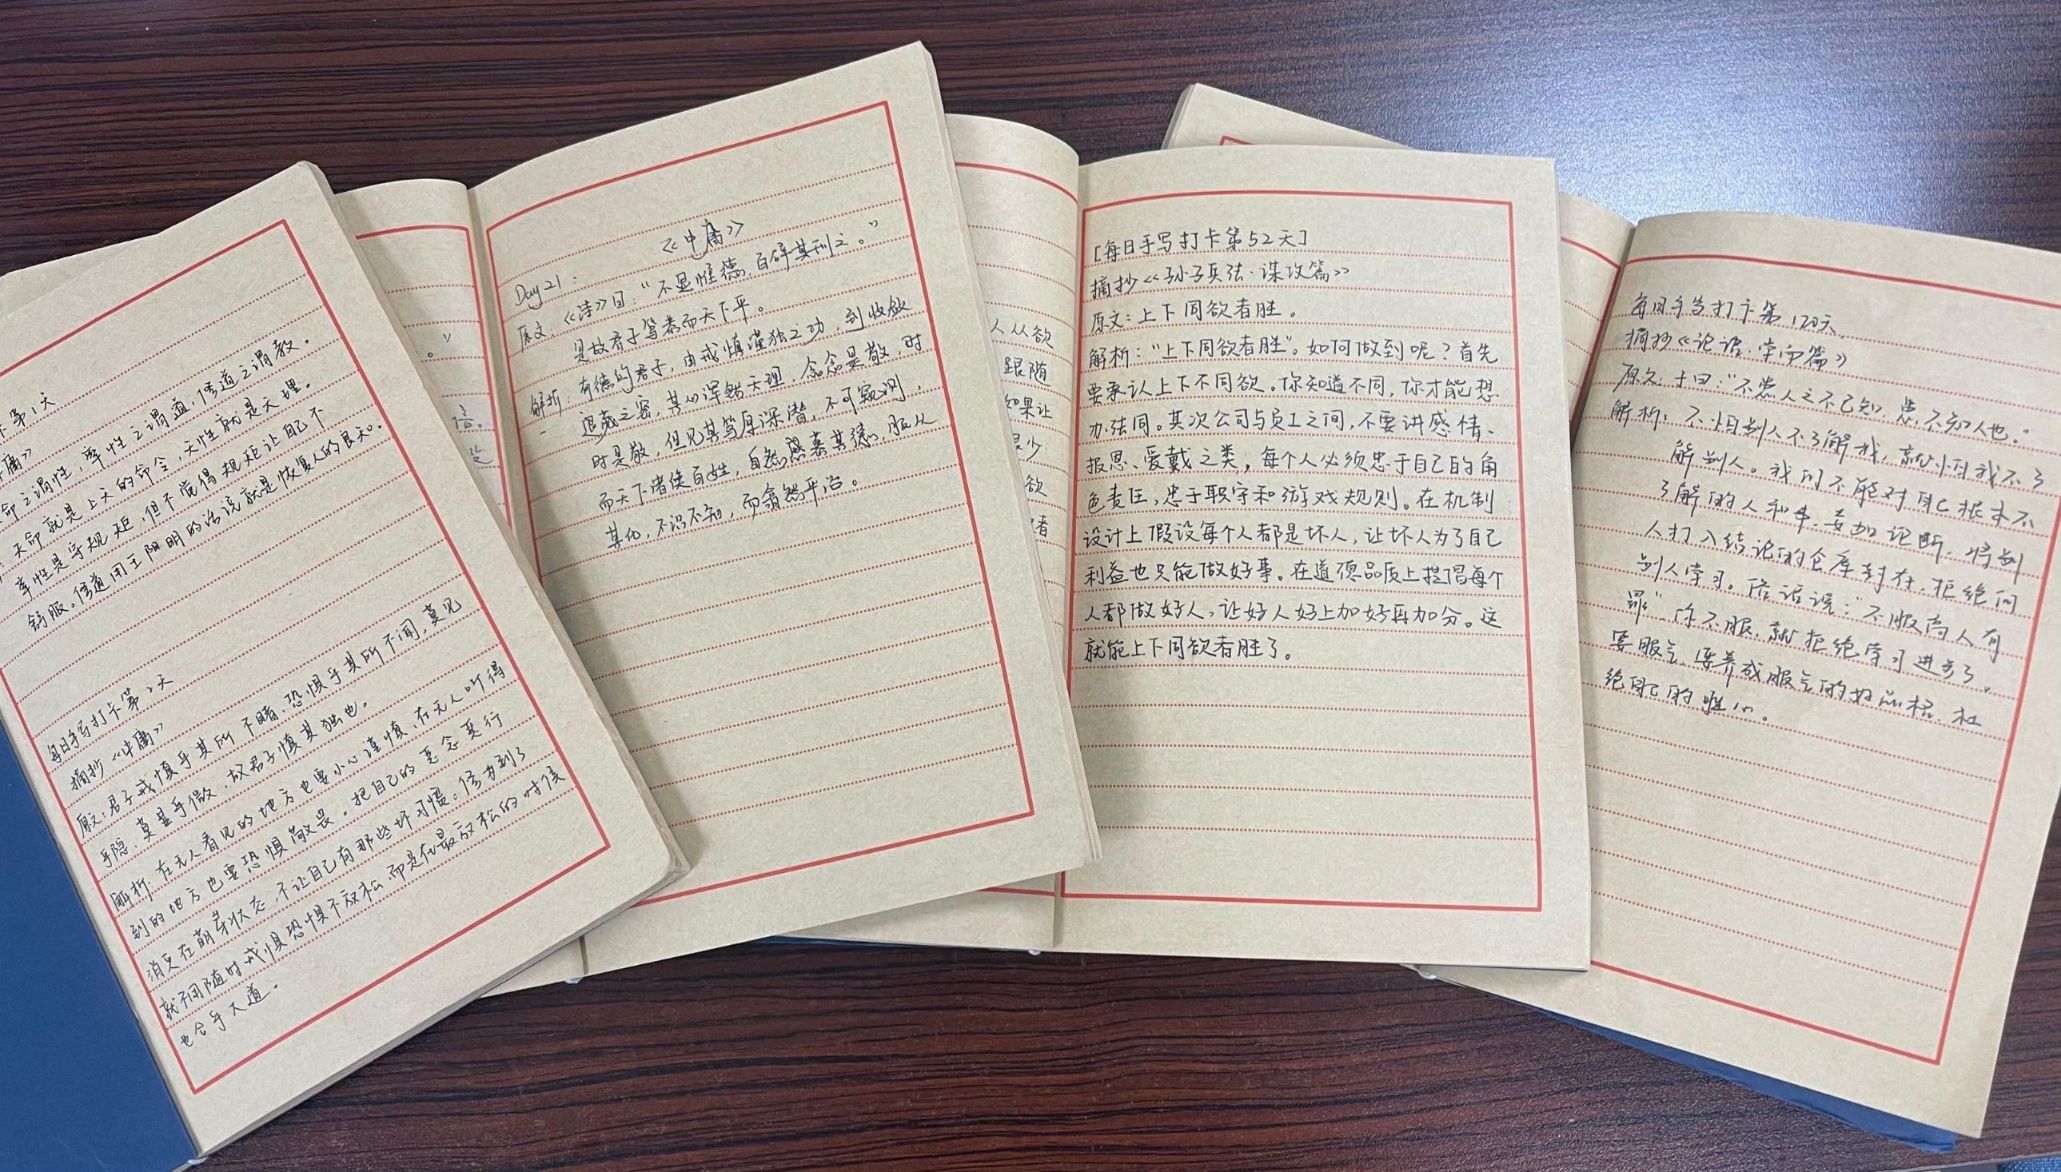 卡第1天
庸》
命之谓性，率性之谓道，修道之谓教。
天命就是上天的命令，天性就是天理。
率性是守规矩，但不觉得规矩让自己不
舒服。修道用王阳明的话说就是恢复人的良知。
每日手写打卡第2天
摘抄《中庸》
原文：君子戒慎乎其所不睹，恐惧乎其所不闻，莫见
乎隐，莫显乎微，故君子慎其独也。
解析：在无人看见的地方也要小心谨慎，在无人听得
到的地方也要恐惧敬畏。把自己的恶念恶行
消灭在萌芽状态，不让自己有那些坏习惯。修为到了
就不用随时戒慎恐惧不放松，而是在最放松的时候
也合乎大道。
。”
《中庸》
Day21：
原文：《诗》曰：“不显惟德，百辟其刑之。”
是故君子笃恭而天下平。
解析：有德的君子，由戒慎谨独之功，到收敛
退藏之密，其心浑然天理，念念是敬，时
时是敬，但见其笃厚深潜，不可窥测，
而天下诸侯百姓，自然感慕其德，服从
其化，不识不知，而翕然平治。
人从欲
跟随
如果让
很少
欲
者
[每日手写打卡第52天]
摘抄《孙子兵法·谋攻篇》
原文：上下同欲者胜。
解析：“上下同欲者胜”。如何做到呢？首先
要承认上下不同欲。你知道不同，你才能想
办法同。其次公司与员工之间，不要讲感情、
报恩、爱戴之类，每个人必须忠于自己的角
色责任，忠于职守和游戏规则。在机制
设计上假设每个人都是坏人，让坏人为了自己
利益也只能做好事。在道德品质上提倡每个
人都做好人，让好人好上加好再加分。这
就能上下同欲者胜了。
每日手写打卡第120天
摘抄《论语·学而篇》
原文：子曰：“不患人之不己知，患不知人也。”
解析：不怕别人不了解我，就怕我不了
解别人。我们不能对自己根本不
了解的人和事，妄加论断，将别
人打入结论的仓库封存，拒绝向
别人学习。俗话说：“不服高人有
罪”你不服，就拒绝学习进步了。
要服气，培养成服气的好品格，杜
绝自己的胜心。